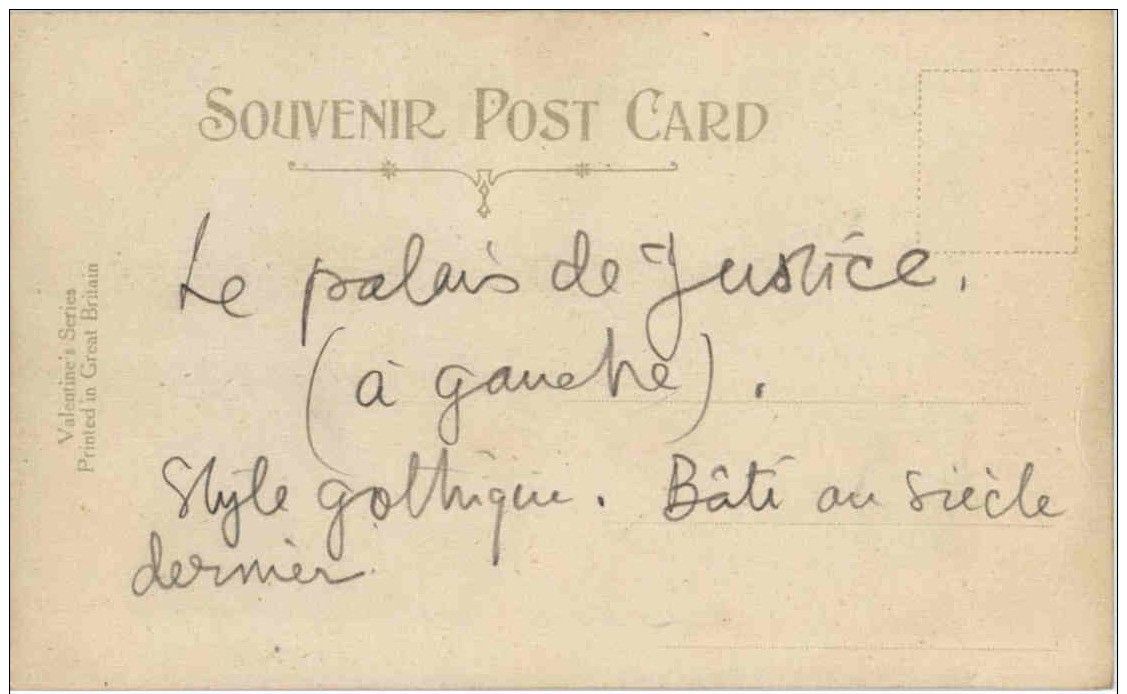 SOUVENIR POST CARD
Valentine's Series
Printed in Great Britain
Le palais de Justice.
(à gauche).
Style gothique. Bâti au siècle
dernier.